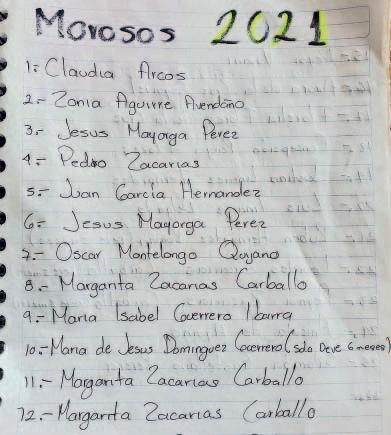 Morosos 2021
1.- Claudia Arcos
2.- Zonia Aguirre Avendaño
3.- Jesus Mayorga Perez
4.- Pedro Zacarias
5.- Juan Garcia Hernandez
6.- Jesus Mayorga Perez
7.- Oscar Montelongo Quijano
8.- Margarita Zacarias Carballo
9.- Maria Isabel Guerrero Ibarra
10.- Maria de Jesus Dominguez Guerrero (solo Deve 6 meses)
11.- Margarita Zacarias Carballo
12.- Margarita Zacarias Carballo